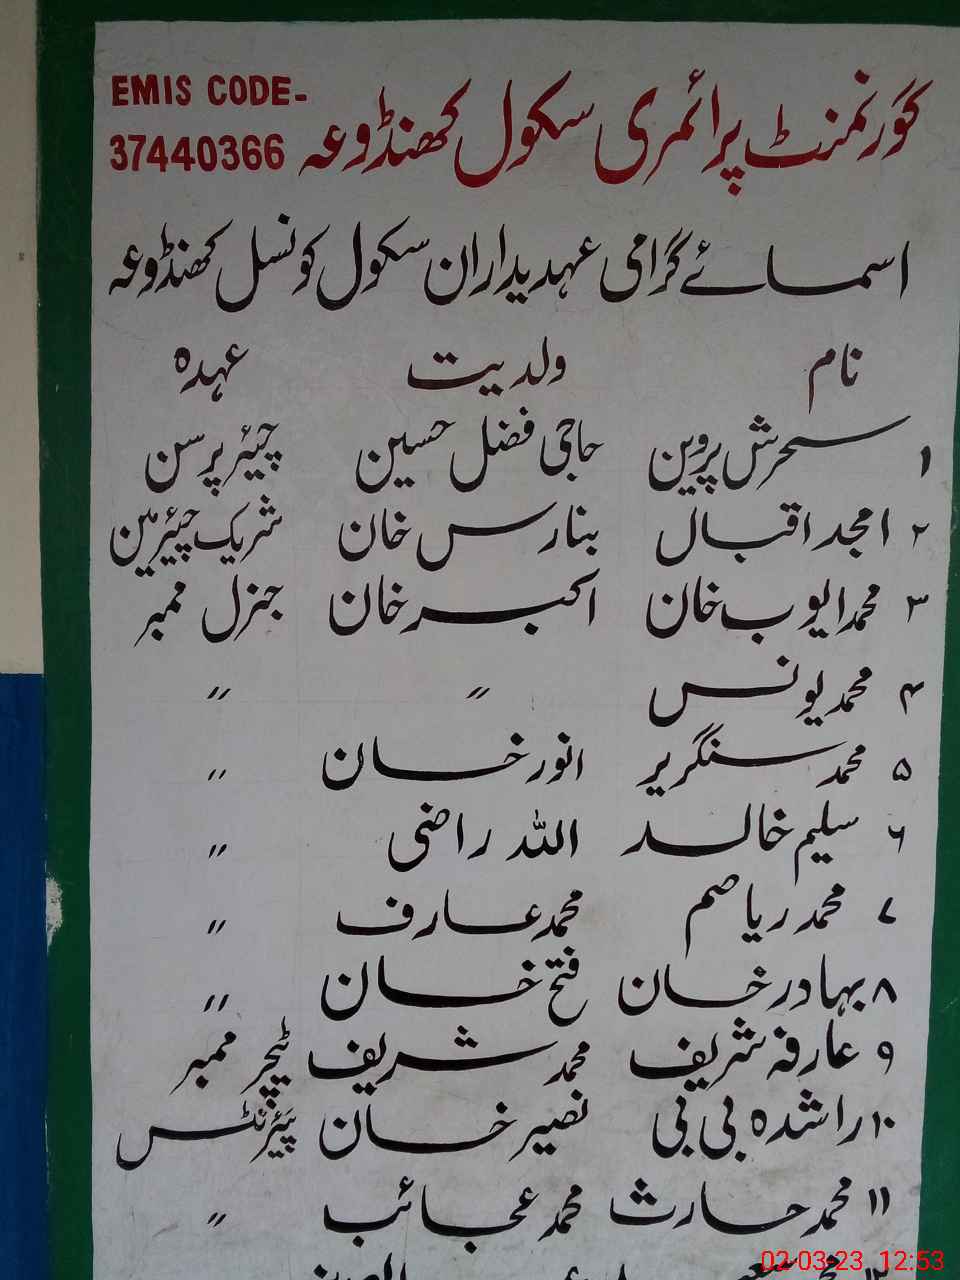 EMIS CODE-
37440366 گورنمنٹ پرائمری سکول کھنڈوعہ
اسمائے گرامی عہدیداران سکول کونسل کھنڈوعہ
نام ولدیت عہدہ
۱ سحرش پروین حاجی فضل حسین چیئرپرسن
۲ امجد اقبال بنارس خان شریک چیئرمین
۳ محمد ایوب خان اکبر خان جنرل ممبر
۴ محمد یونس 〃 〃
۵ محمد سنگریر انور خان 〃
۶ سلیم خالد اللہ راضی 〃
۷ محمد ریاصم محمد عارف 〃
۸ بہادر خان فتح خان 〃
۹ عارفہ شریف محمد شریف ٹیچر ممبر
۱۰ راشدہ بی بی نصیر خان پیرنٹس
۱۱ محمد حارث محمد عجائب 〃
02-03-23 12:53